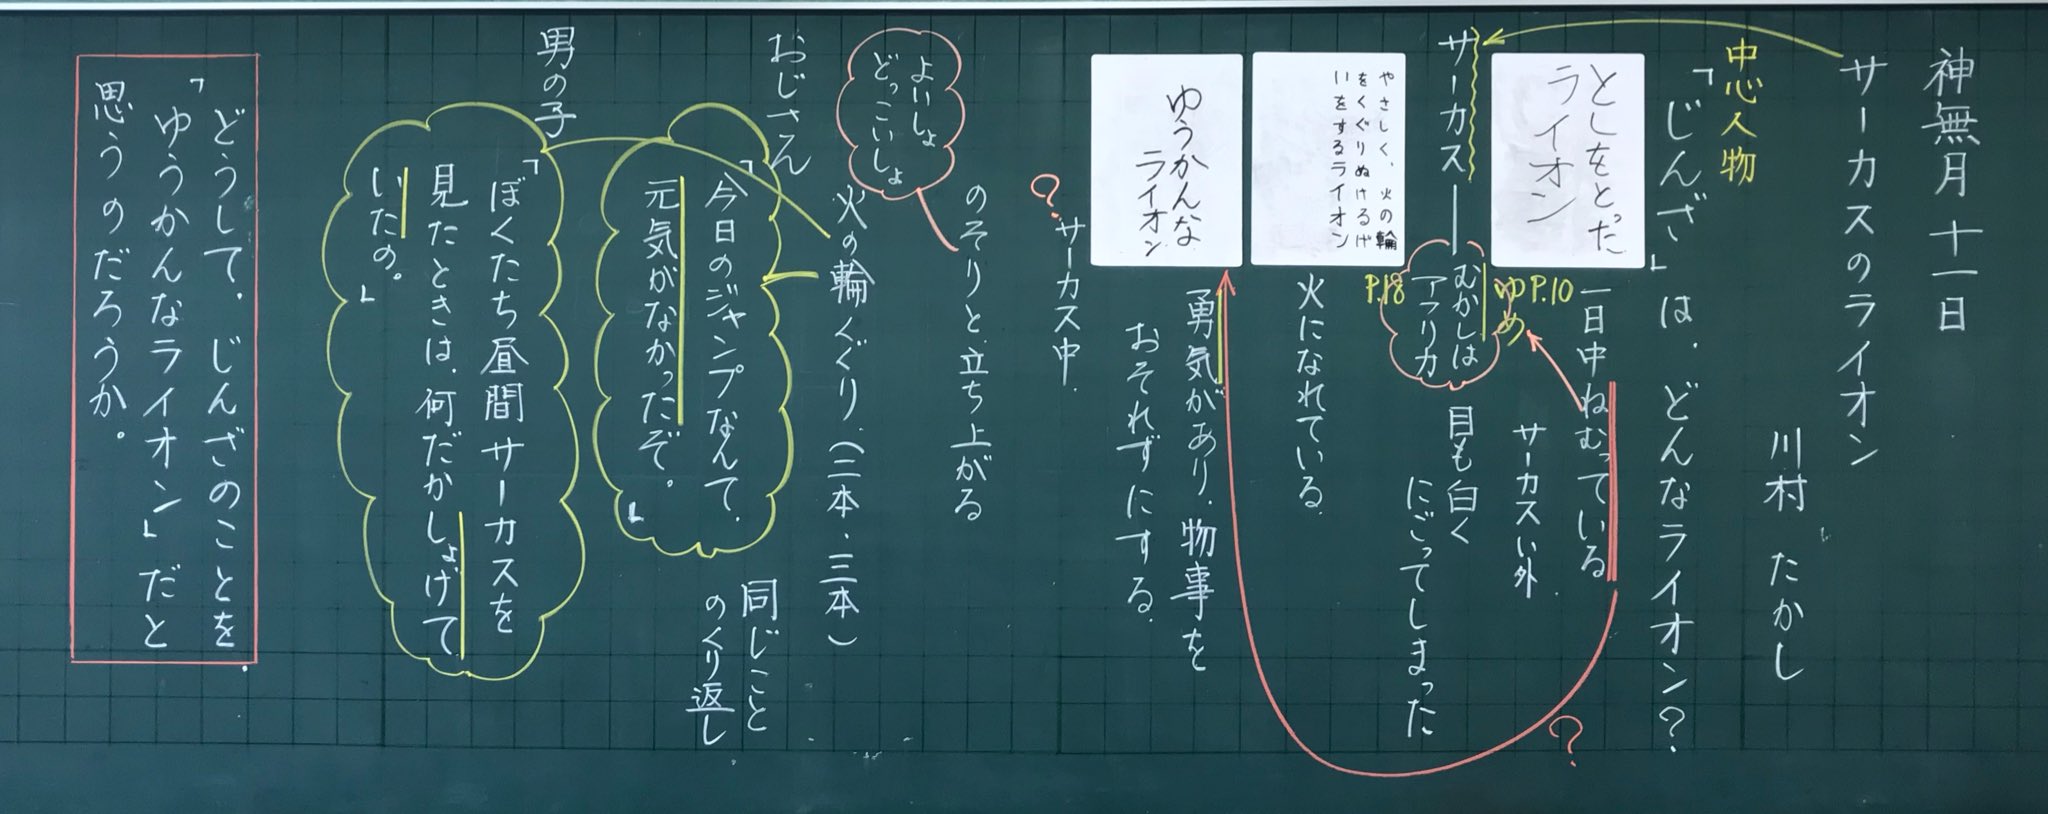 神無月十一日
サーカスのライオン
川村 たかし
中心人物
「じんざ」は、どんなライオン?
としをとった
ライオン
P.10
一日中ねむっている
ゆめ
サーカスい外
?
サーカス
むかしは
アフリカ
目も白く
にごってしまった
やさしく、火の輪
をくぐりぬけるげ
いをするライオン
P.18
火になれている
ゆうかんな
ライオン
勇気があり、物事を
おそれずにする。
?
サーカス中
のそりと立ち上がる
よいしょ
どっこいしょ
火の輪くぐり(二本、三本)
おじさん
「今日のジャンプなんて、
元気がなかったぞ。」
同じこと
のくり返し
男の子
「ぼくたち昼間サーカスを
見たときは、何だかしょげて
いたの。」
どうして、じんざのことを、
「ゆうかんなライオン」だと
思うのだろうか。